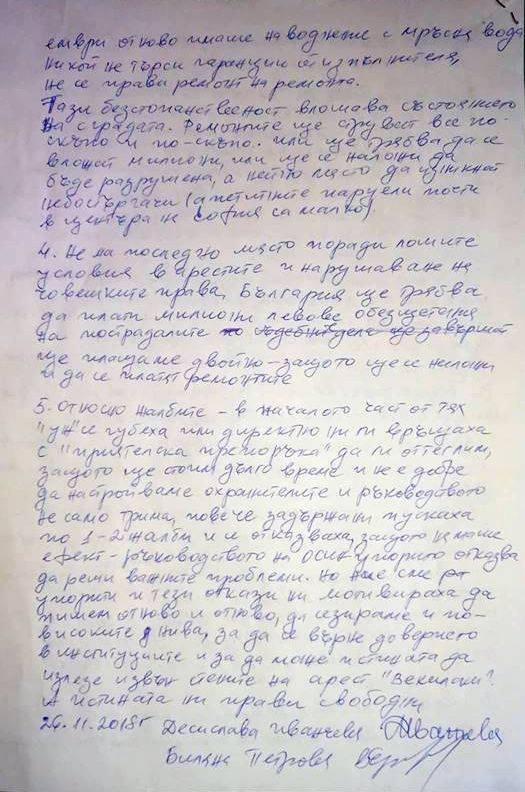 ември отново имаше наводнение с мръсна вода
никой не търси гаранции от изпълнителя,
не се прави ремонт на ремонта.
Тази безстопанственост влошава състоянието
на сградата. Ремонтите ще струват все по-
скъпо и по-скъпо. или ще трябва да се
вложат милиони, или ще се наложи да
бъде разрушена, а на него място да изникнат
небостъргачи (апетитните парцели почти
в центъра на София са малко).
4. Не на последно място поради лошите
условия в арестите и нарушаване на
човешките права, България ще трябва
да плати милиони левове обезщетения
на пострадалите по подобни дела ще завършат
ще плащаме двойно - защото ще се наложи
и да се платят ремонтите
5. Относно жалбите - в началото част от тях
"уж" се губеха или директно ни ги връщаха
с "приятелска препоръка" да ги оттеглим,
защото ще стоим дълго време и не е добре
да настройваме охранителите и ръководството
не само трима, повече задържани пускаха
по 1-2 жалби и се отказваха, защото нямаше
ефект - ръководството на ОСИН упорито отказва
да реши важните проблеми. Но ние сме
упорити и тези откази ни мотивираха да
пишем отново и отново, да сезираме и по-
високите нива, за да се върне доверието
в институциите и за да може истината да
излезе извън стените на арест "Векилски".
А истината ни прави свободни
26.11.2018г Десислава Иванчева Иванчева
Биляна Петрова